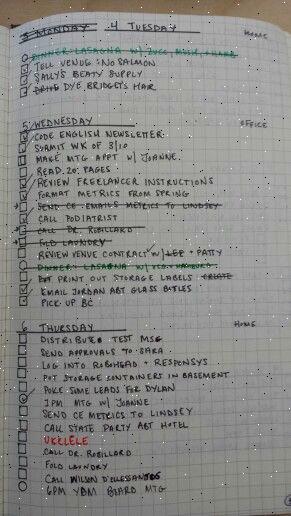 3 MONDAY 4 TUESDAY
HOME
DINNER: LASAGNA W/ ZUCC, MUSH, + HAMB
TELL VENUE: NO SALMON
SALLY'S BEATY SUPPLY
DRIVE DYE BRIDGET'S HAIR
5 WEDNESDAY OFFICE
CODE ENGLISH NEWSLETTER
SUBMIT WK OF 3/10
MAKE MTG APPT W/ JOANNE
READ 20 PAGES
REVIEW FREELANCER INSTRUCTIONS
FORMAT METRICS FROM SPRING
SEND CE EMAILS METRICS TO LINDSEY
CALL PODIATRIST
CALL DR. ROBILLARD
FOLD LAUNDRY
REVIEW VENUE CONTRACT W/ LEE + PATTY
DINNER: LASAGNA W/
PRINT OUT STORAGE LABELS
EMAIL JORDAN ABT GLASS BOTTLES
PICK UP BC
6 THURSDAY HOME
DISTRIBUTE TEST MSG
SEND APPROVALS TO SARA
LOG INTO ROBOHEAD + RESPONSYS
PUT STORAGE CONTAINERS IN BASEMENT
POKE SOME LEADS FOR DYLAN
1PM MTG W/ JOANNE
SEND CE METRICS TO LINDSEY
CALL STATE PARTY ABT HOTEL
UKELELE
CALL DR. ROBILLARD
FOLD LAUNDRY
CALL WILSON
6PM YDM BOARD MTG